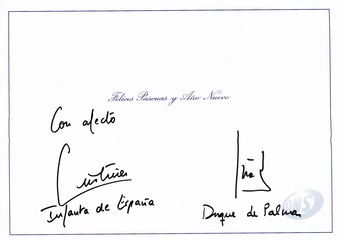 Felices Pascuas y Año Nuevo
Con afecto
Cristina
Infanta de España
Duque de Palma